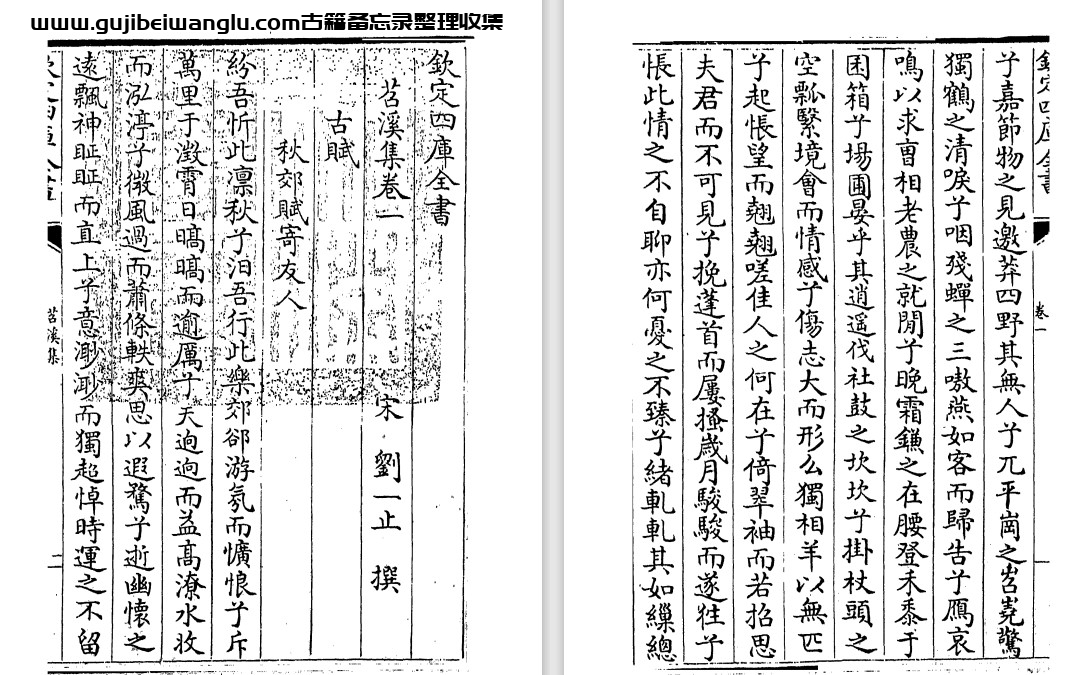 www.gujibeiwanglu.com古籍备忘录整理收集
欽定四庫全書
苕溪集卷一
宋 劉一止 撰
古賦
秋郊賦寄友人
紛吾忻此凛秋兮汩吾行此樂郊郤游氛而懭悢兮斥
萬里于澂霄日暠暠而逾厲兮天逈逈而益髙潦水收
而泓渟兮微風過而蕭條軼爽思以遐騖兮逝幽懷之
遠飄神眐眐而直上兮意渺渺而獨超悼時運之不留
苕溪集
子嘉節物之見邀莽四野其無人兮兀平岡之岧嶤驚
獨鶴之清唳兮咽殘蟬之三嗷燕如客而歸告兮鴈哀
鳴以求曺相老農之就閒兮晚霜鎌之在腰登禾黍于
囷箱兮場圃晏乎其逍遥伐社鼓之坎坎兮掛杖頭之
空瓢繄境會而情感兮傷志大而形么獨相羊以無匹
兮起悵望而翹翹嗟佳人之何在兮倚翠袖而若招思
夫君而不可見兮挽蓬首而屢搔歳月駿駿而遂徃兮
悵此情之不自聊亦何憂之不臻兮緒軋軋其如繅總
卷一